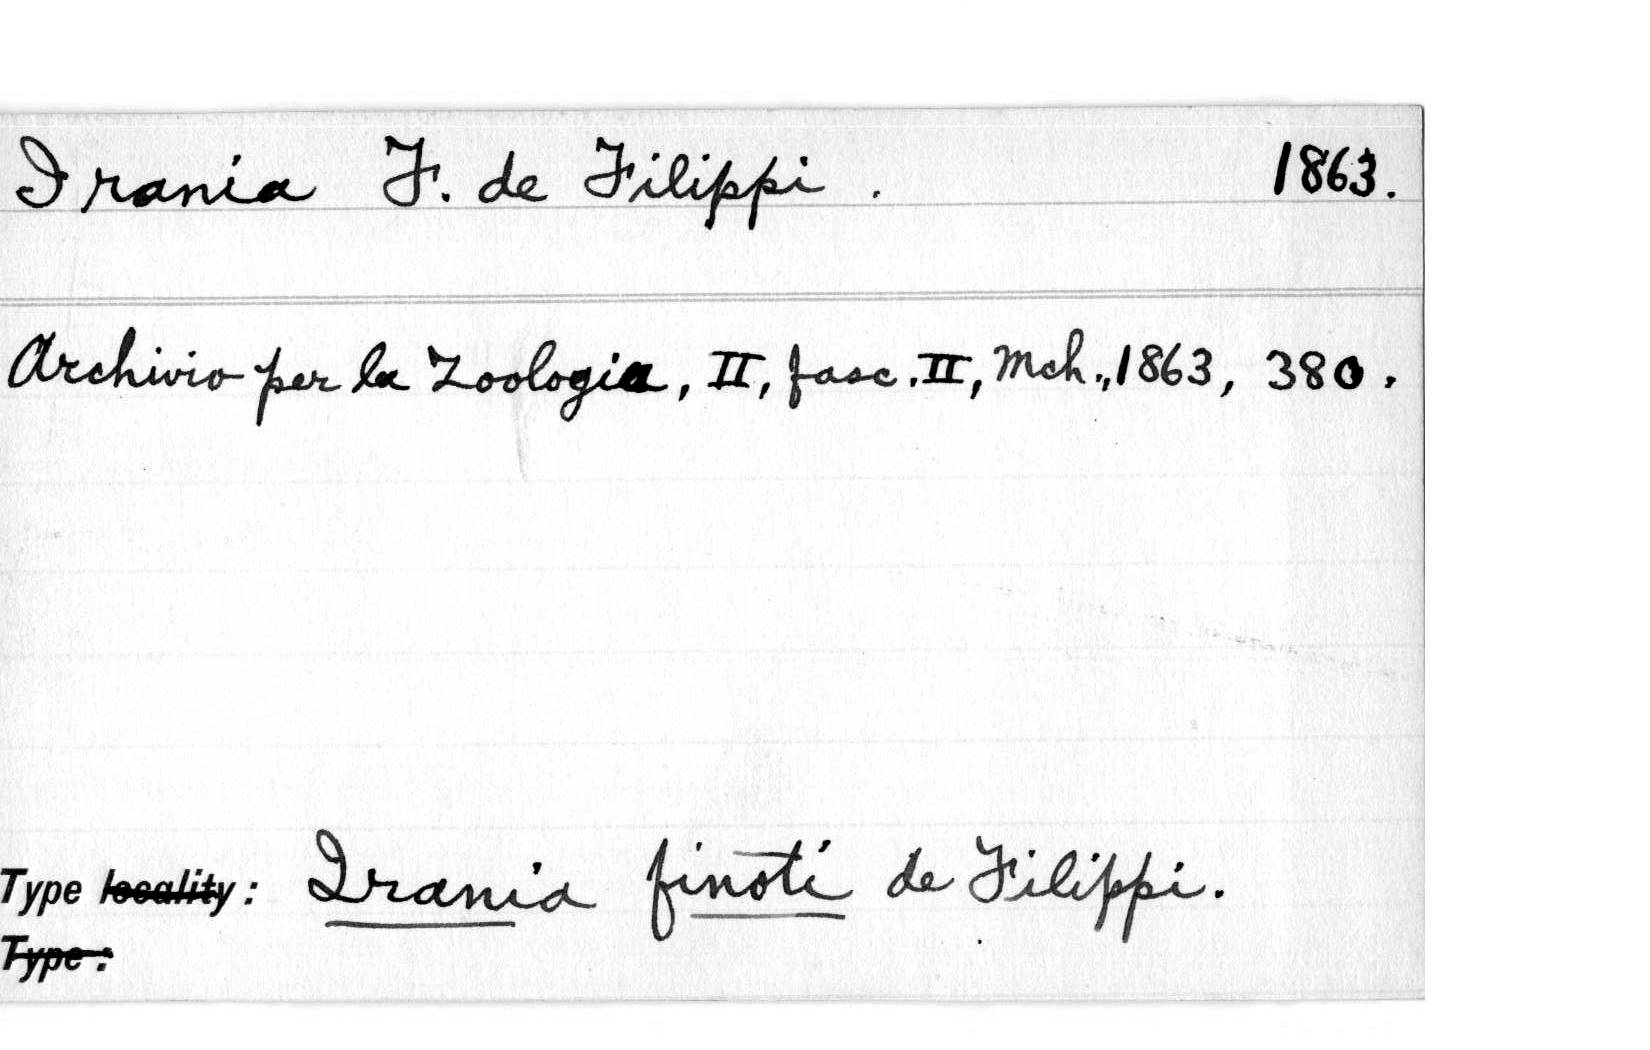 Irania F. de Filippi . 1863.
Archivio per la Zoologia, II, fasc. II, Mch., 1863, 380.
Type locality: Irania finoti de Filippi.
Type: